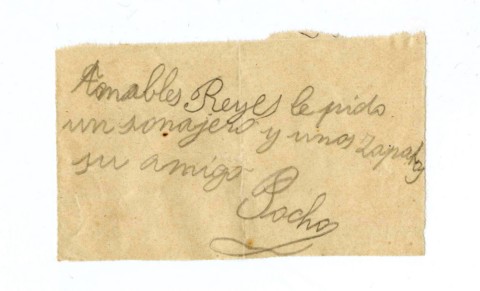 Amables Reyes le pido
un sonajero y unos zapatos
su amigo
Pocho